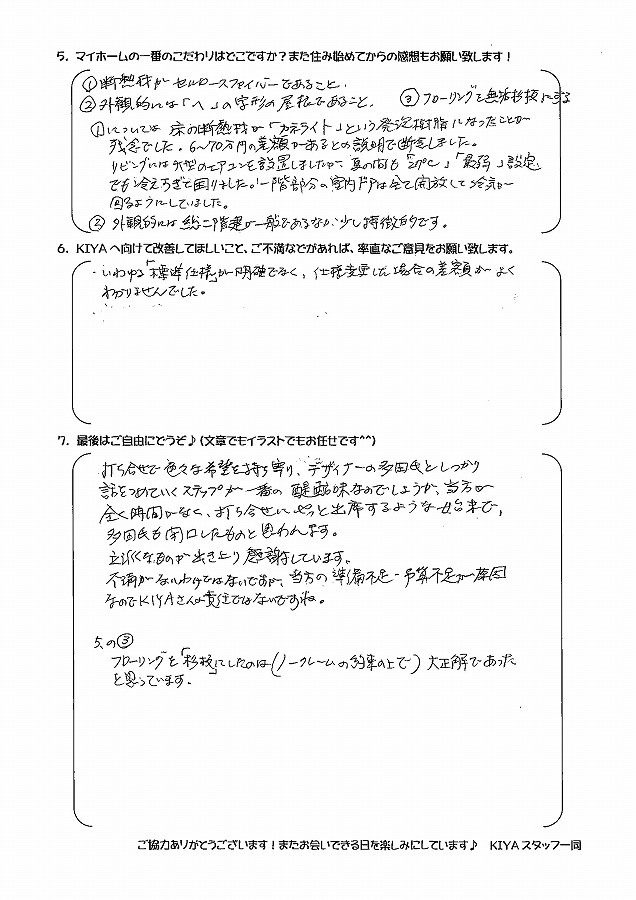 5．マイホームの一番のこだわりはどこですか？また住み始めてからの感想もお願い致します！
①断熱材がセルロースファイバーであること。
②外観的には「へ」の字形の屋根であること。 ③フローリングを無垢杉板にする
①については 床の断熱材が「カネライト」という発泡樹脂になったことが
残念でした。6〜70万円の差額があるとの説明で断念しました。
リビングには大型のエアコンを設置しましたが、真夏の間も「27℃」「最弱」設定
でも冷えすぎて困りました。一階部分の室内ドアは全て開放して冷気が
回るようにしていました。
②外観的には総二階建が一般であるなか少し特徴的です。
6．KIYAへ向けて改善してほしいこと、ご不満などがあれば、率直なご意見をお願い致します。
・いわゆる「標準仕様」が明確でなく、仕様変更した場合の差額がよく
わかりませんでした。
7．最後はご自由にどうぞ♪(文章でもイラストでもお任せです^^)
打ち合せで色々な希望を持ち寄り、デザイナーの多田氏としっかり
話をつめていくステップが一番の醍醐味なのでしょうが、当方が
全く時間がなく、打ち合せにやっと出席するような始末で、
多田氏も閉口したものと思われます。
立派なものが出き上り感謝しています。
不満がないわけではないですが、当方の準備不足・予算不足が原因
なのでKIYAさんの責任ではないですね。
5、の③
フローリングを「杉板」にしたのは(ノークレームの約束の上で)大正解であった
と思っています。
ご協力ありがとうございます！またお会いできる日を楽しみにしています♪ KIYAスタッフ一同